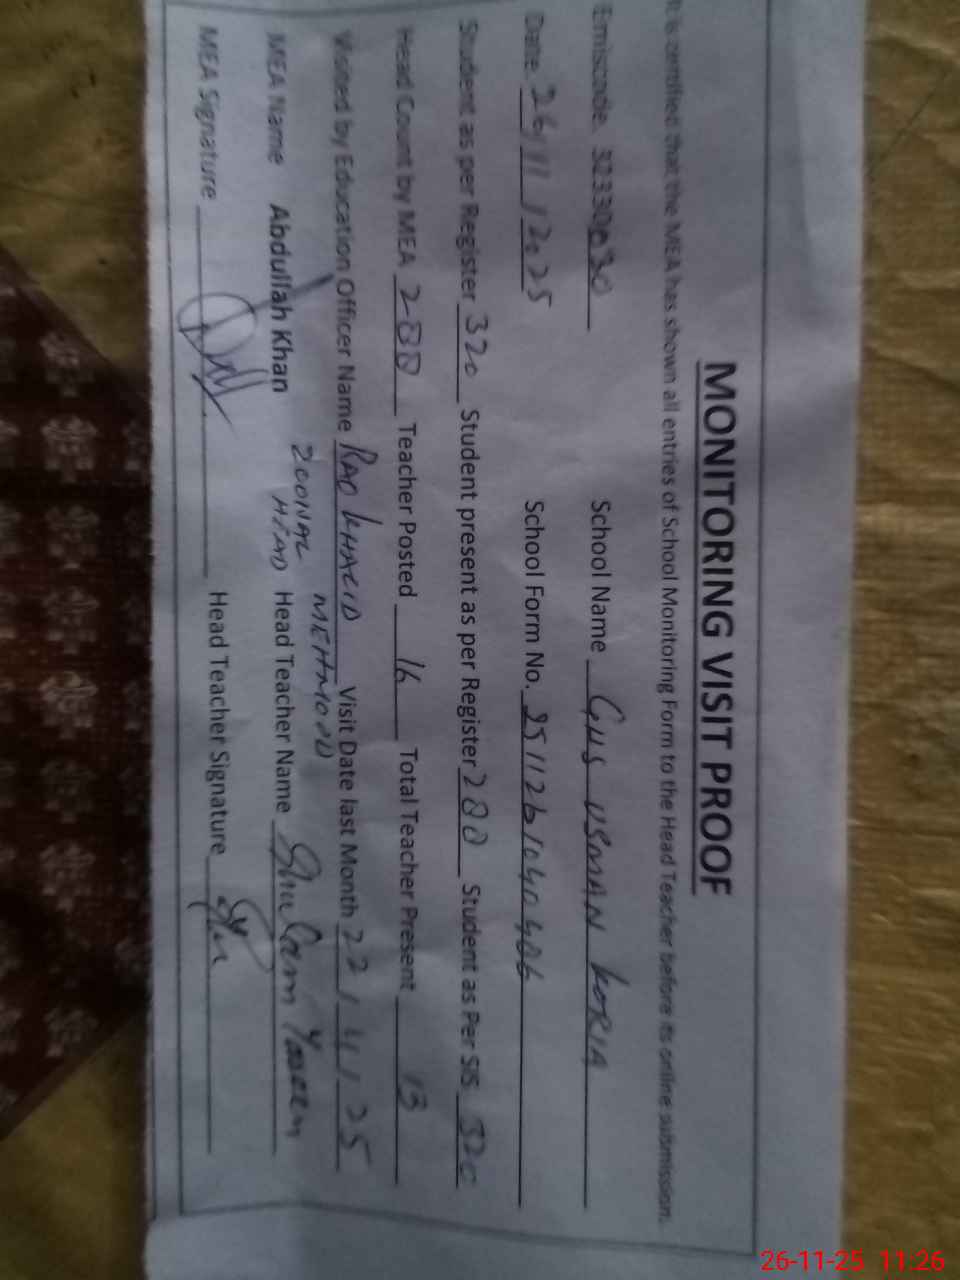 MONITORING VISIT PROOF
It is certified that the MEA has shown all entries of School Monitoring Form to the Head Teacher before its online submission.
Emiscode. 32330030 School Name GHS USMAN KORIA
Date. 26/11/2025 School Form No. 2511261040406
Student as per Register 320 Student present as per Register 288 Student as Per SIS 320
Head Count by MEA 288 Teacher Posted 16 Total Teacher Present 13
Visited by Education Officer Name RAO KHALID MEHMOOD Visit Date last Month 22/11/25
ZOONAL HEAD
MEA Name Abdullah Khan Head Teacher Name Ghulam Yaseen
MEA Signature Head Teacher Signature
26-11-25 11:26